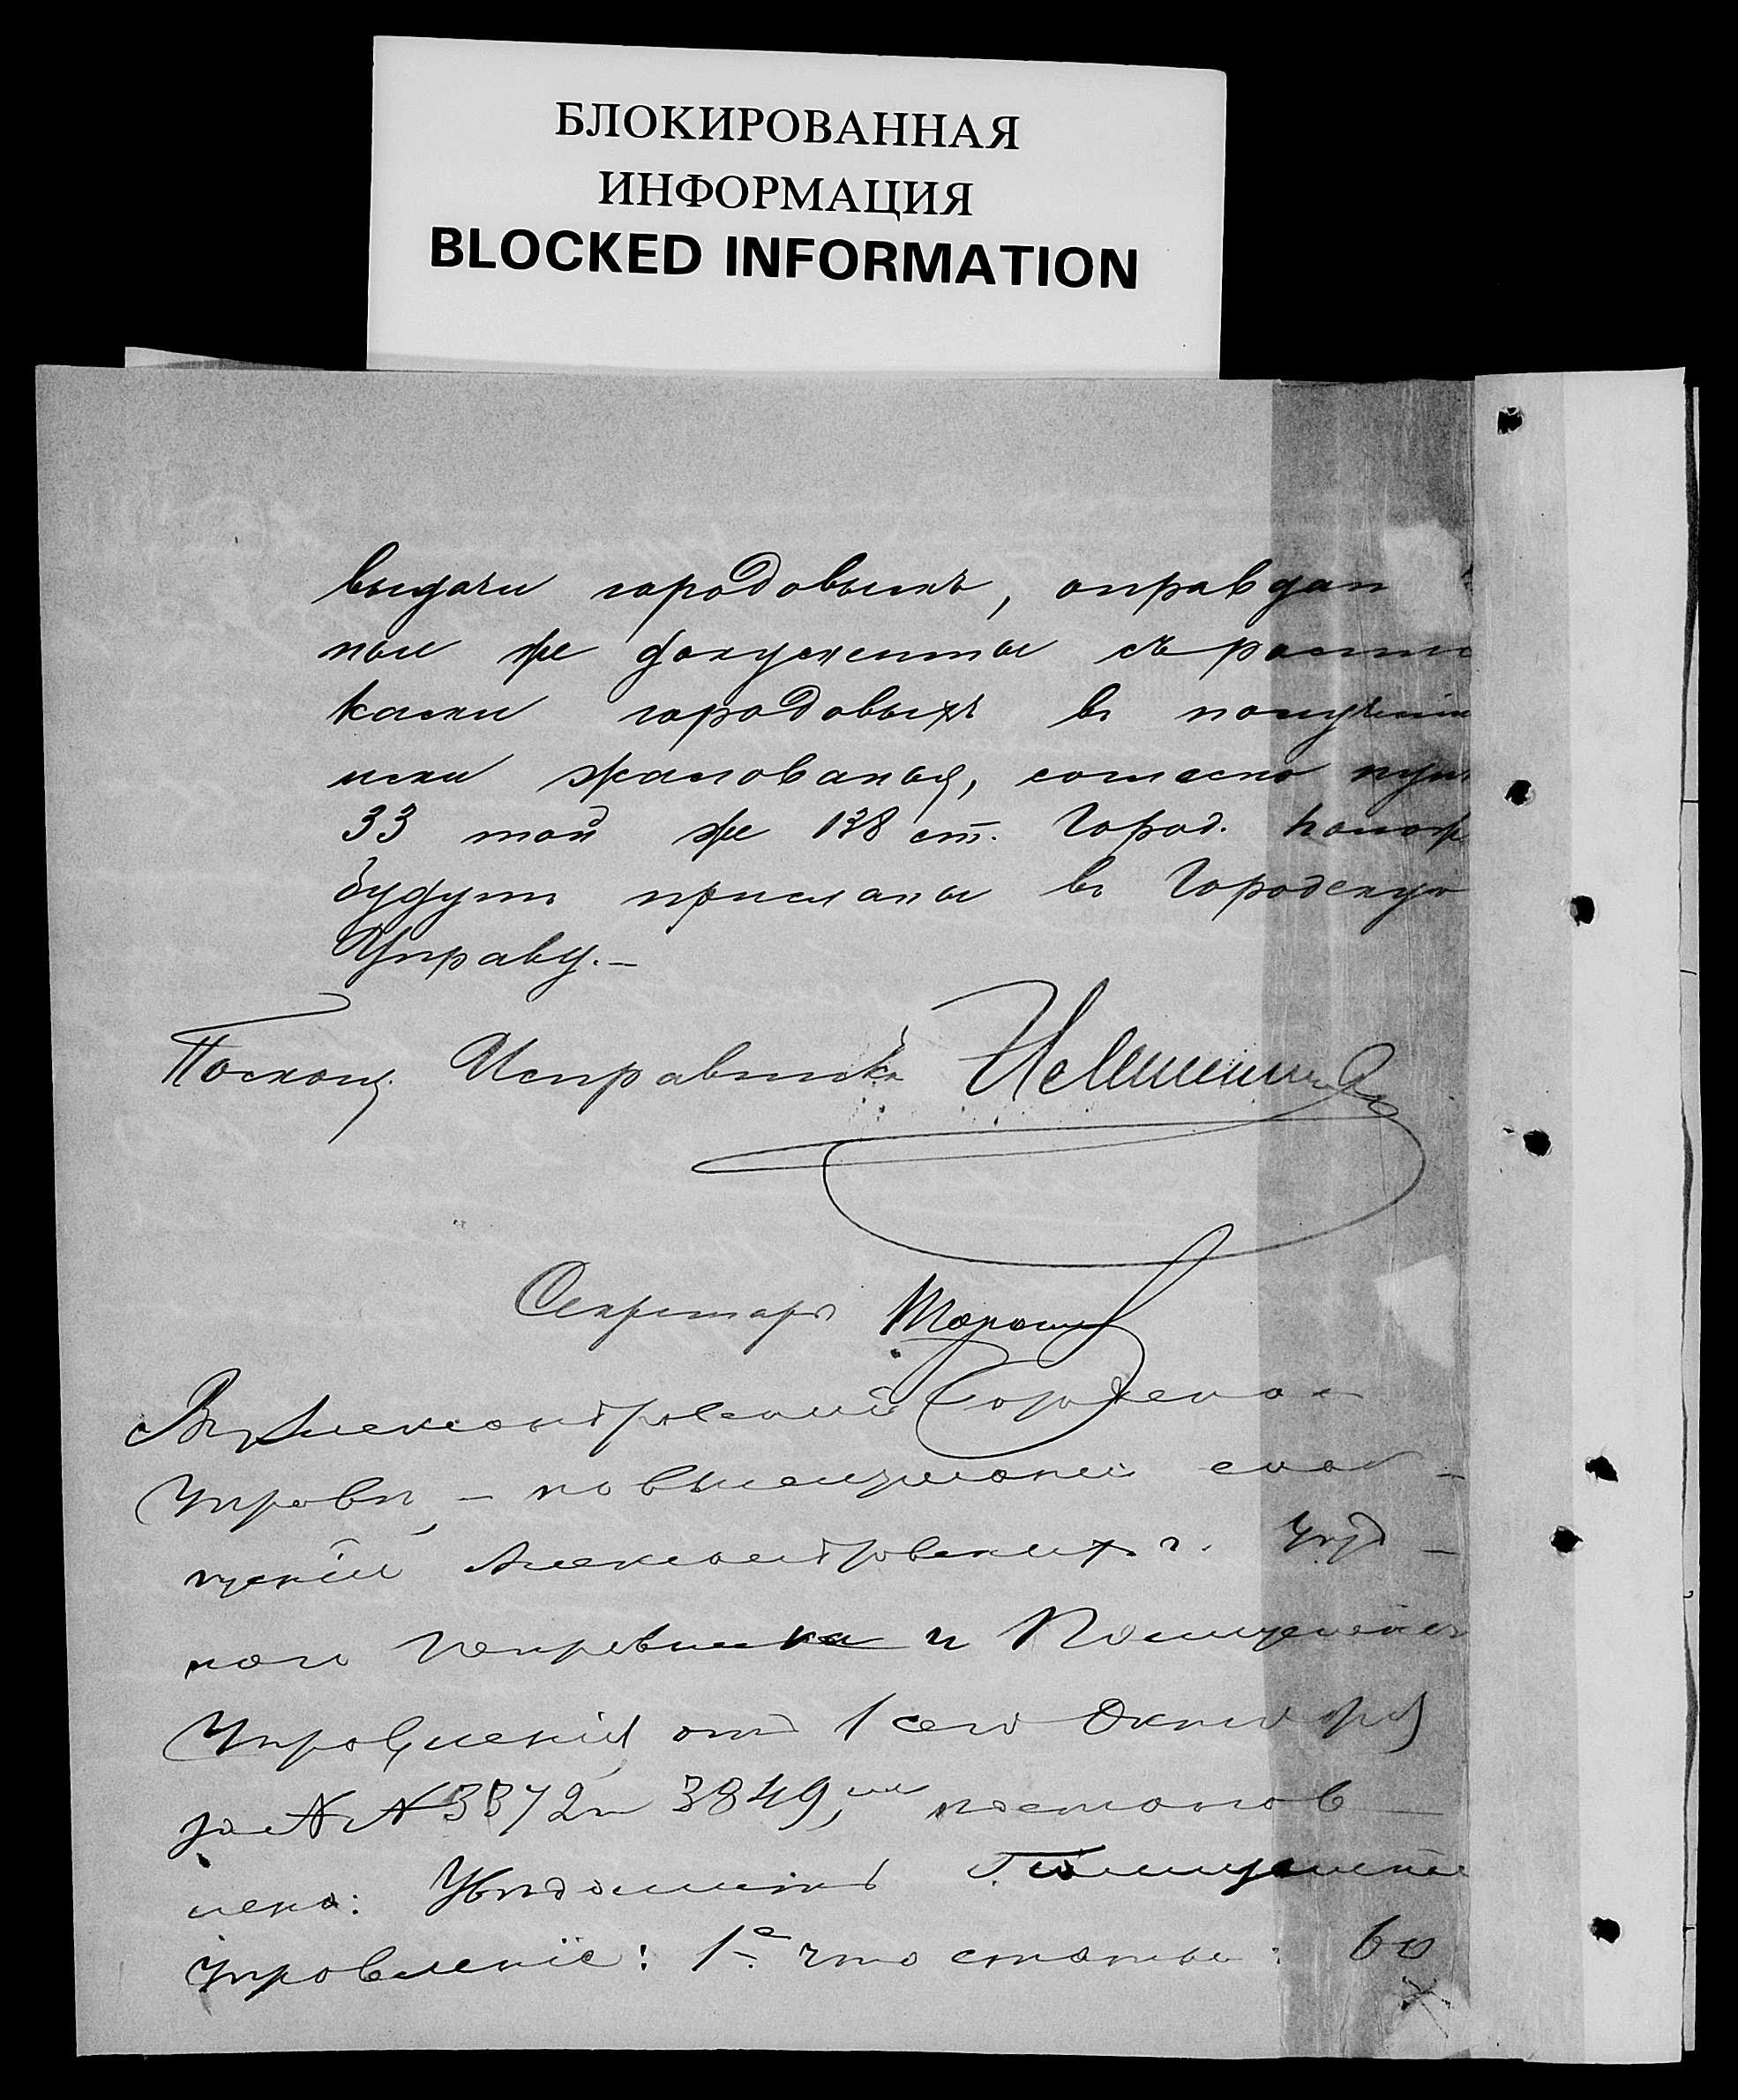 БЛОКИРОВАННАЯ
ИНФОРМАЦИЯ
BLOCKED INFORMATION
выдачи городовымъ, оправдан
ные же документы съ распис
ками городовыхъ въ полученіи
ими жалованья, согласно пун
33 той же 138 ст. Город. полож
будутъ присланы въ Городскую
Управу.—
Исправника
Секретарь
Въ Александровской Городской
Управѣ, — по выслушаніи сооб-
щеній Александровскихъ г. Уѣзд-
наго Исправника и Полицейскаго
Управленія, отъ 1 сего Октября
за №№ 3372 и 3849, постанов-
лено: Увѣдомить Полицейское
Управленіе: 1е что статьи: 60